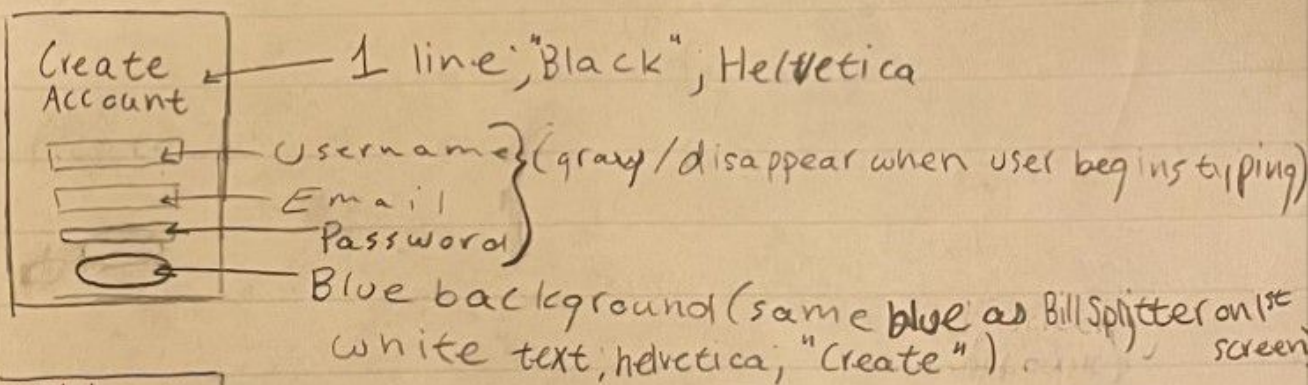 Create
Account
1 line; "Black", Helvetica
Username (gray/disappear when user begins typing)
Email
Password
Blue background (same blue as BillSplitter on 1st
screen
white text, helvetica, "Create")